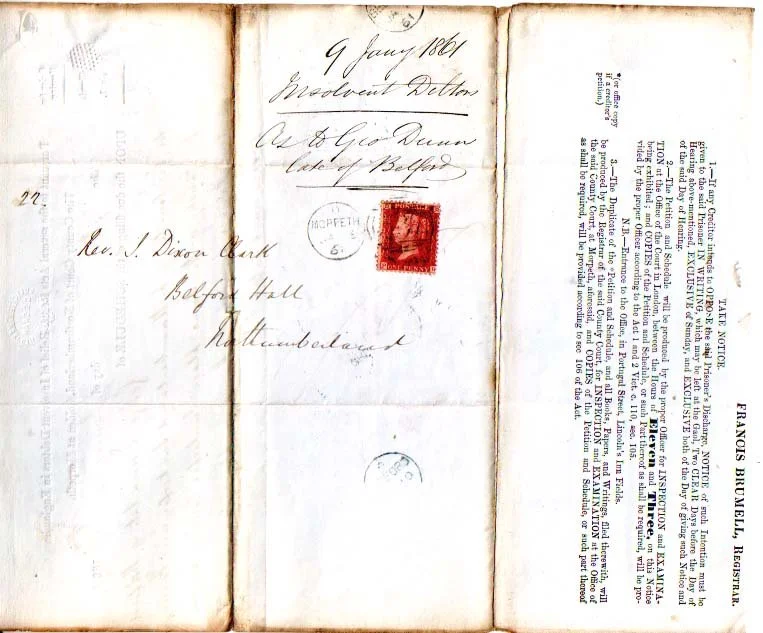 9 Jany 1861
Insolvent Debtors
As to Geo Dunn
late of Belford
22.
MORPETH
ONE PENNY
Rev. J. Dixon Clark
Belford Hall
Northumberland
FRANCIS BRUMELL, REGISTRAR.
TAKE NOTICE.
1.—If any Creditor intends to OPPOSE the said Prisoner's Discharge, NOTICE of such Intention must be
given to the said Prisoner IN WRITING, which may be left at the Gaol, Two CLEAR Days before the Day of
Hearing above-mentioned, EXCLUSIVE of Sunday, and EXCLUSIVE both of the Day of giving such Notice and
of the said Day of Hearing.
2.—The Petition and Schedule will be produced by the proper Officer for INSPECTION and EXAMINA-
TION at the Office of the Court in London, between the Hours of Eleven and Three, on this Notice
being exhibited; and COPIES of the Petition and Schedule, or such Part thereof as shall be required, will be pro-
vided by the proper Officer according to the Act 1 and 2 Vict. c. 110, sec. 105.
N.B.—Entrance to the Office, in Portugal Street, Lincoln's Inn Fields.
3.—The Duplicate of the *Petition and Schedule, and all Books, Papers, and Writings, filed therewith, will
be produced by the Registrar of the said County Court, for INSPECTION and EXAMINATION at the Office of
the said County Court, at Morpeth, aforesaid, and COPIES of the Petition and Schedule, or such part thereof
as shall be required, will be provided according to sec 106 of the Act.
*(or office copy
if a creditor's
petition.)